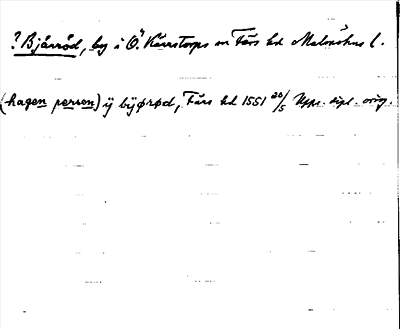 ? Bjärröd, by i Ö. Kärrstorps sn Färs hd Malmöhus l.
(hagen persen) ÿ byørød, Färs hd 1551 20/5 Upps. dipl. orig.